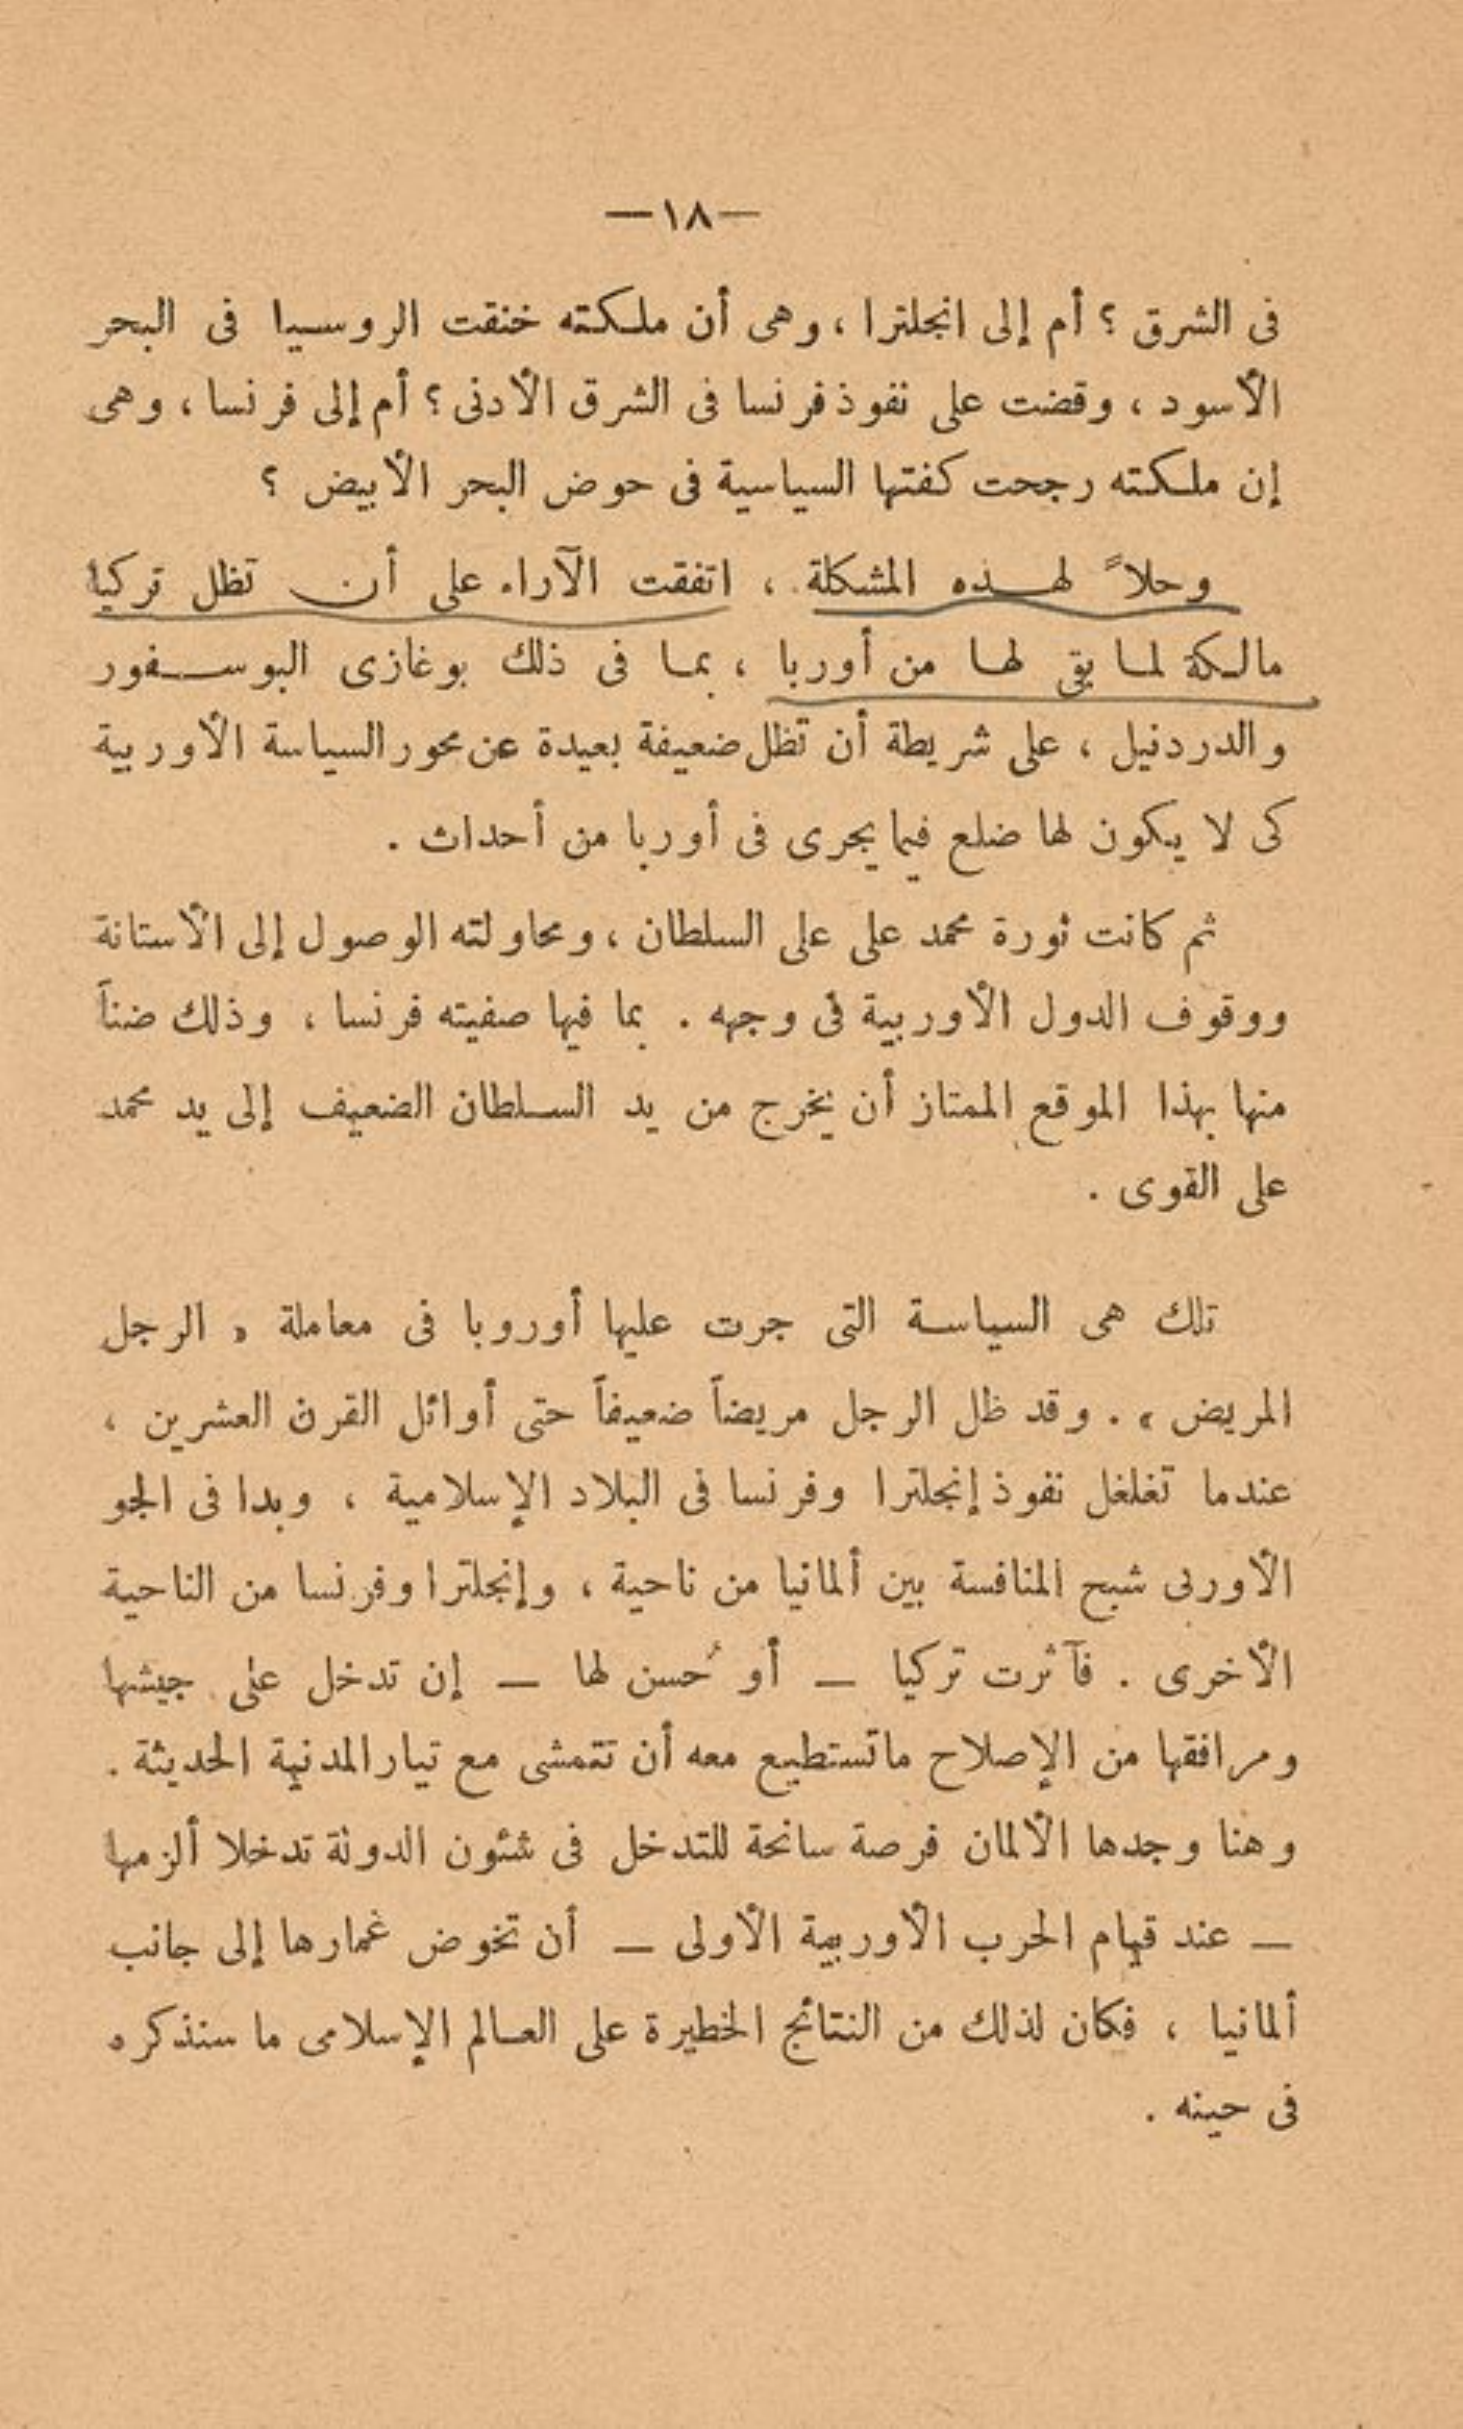 —١٨—
فى الشرق ؟ أم إلى انجلترا ، وهى أن ملكته خنقت الروسيا فى البحر
الأسود ، وقضت على نفوذ فرنسا فى الشرق الأدنى ؟ أم إلى فرنسا ، وهى
إن ملكته رجحت كفتها السياسية فى حوض البحر الأبيض ؟
وحلاً لهذه المشكلة ، اتفقت الآراء على أن تظل تركيا
مالكة لما بقى لها من أوربا ، بما فى ذلك بوغازى البوسفور
والدردنيل ، على شريطة أن تظل ضعيفة بعيدة عن محور السياسة الأوربية
كى لا يكون لها ضلع فيما يجرى فى أوربا من أحداث .
ثم كانت ثورة محمد على على السلطان ، ومحاولته الوصول إلى الأستانة
ووقوف الدول الأوربية فى وجهه . بما فيها صفيته فرنسا ، وذلك ضناً
منها بهذا الموقع الممتاز أن يخرج من يد السلطان الضعيف إلى يد محمد
على القوى .
تلك هى السياسة التى جرت عليها أوروبا فى معاملة « الرجل
المريض » . وقد ظل الرجل مريضاً ضعيفاً حتى أوائل القرن العشرين ،
عندما تغلغل نفوذ إنجلترا وفرنسا فى البلاد الإسلامية ، وبدا فى الجو
الأوربى شبح المنافسة بين ألمانيا من ناحية ، وإنجلترا وفرنسا من الناحية
الأخرى . فآثرت تركيا — أو حُسن لها — إن تدخل على جيشها
ومرافقها من الإصلاح ماتستطيع معه أن تتمشى مع تيار المدنية الحديثة .
وهنا وجدها الألمان فرصة سانحة للتدخل فى شئون الدولة تدخلا ألزمها
— عند قيام الحرب الأوربية الأولى — أن تخوض غمارها إلى جانب
ألمانيا ، فكان لذلك من النتائج الخطيرة على العالم الإسلامى ما سنذكره
فى حينه .